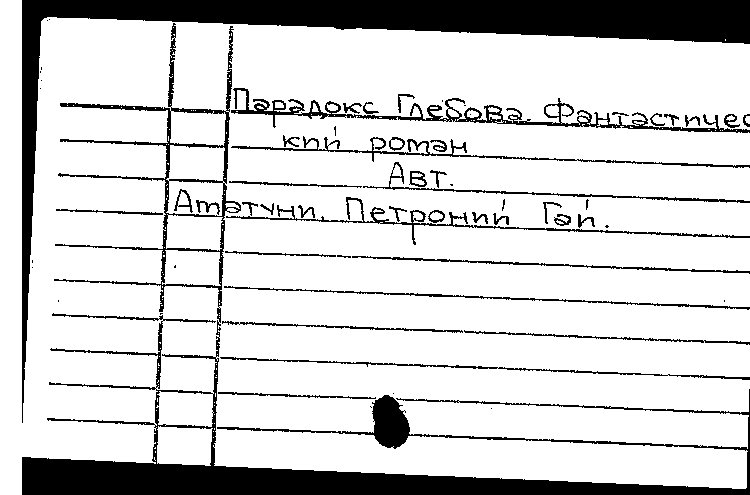 Парадокс Глебова. Фантастичес
кий роман
Авт.
Аматуни. Петроний Гай.